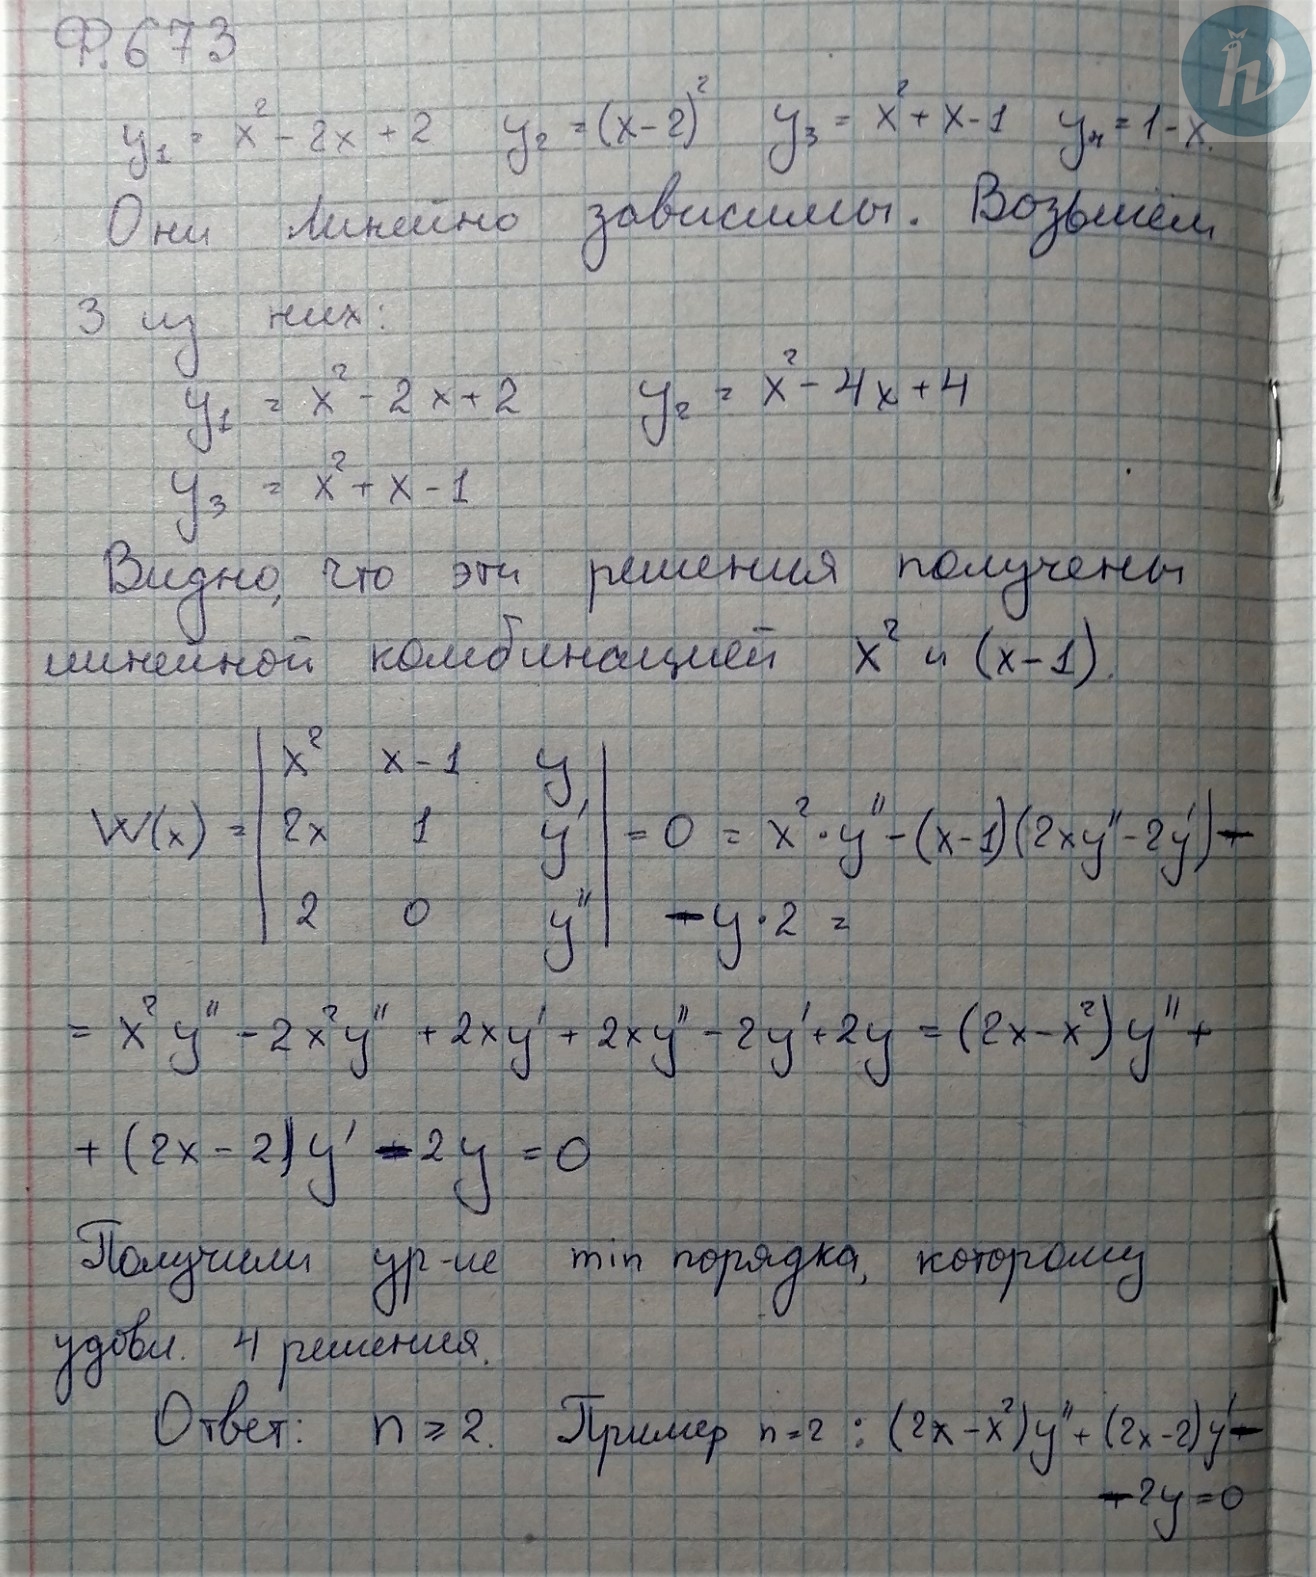 Ф.673
y₁ = x² - 2x + 2   y₂ = (x-2)²   y₃ = x² + x - 1   y₄ = 1 - x.
Они линейно зависимы. Возьмём
3 из них:
y₁ = x² - 2x + 2   y₂ = x² - 4x + 4
y₃ = x² + x - 1
Видно, что эти решения получены
линейной комбинацией x² и (x-1).
W(x) = | x²  x-1  y |
| 2x  1  y' | = 0 = x²·y'' - (x-1)(2xy'' - 2y') -
| 2  0  y'' | - y·2 =
= x²y'' - 2x²y'' + 2xy' + 2xy'' - 2y' + 2y = (2x - x²)y'' +
+ (2x - 2)y' - 2y = 0
Получили ур-ие min порядка, которому
удовл. 4 решения.
Ответ: n ≥ 2. Пример n=2 : (2x - x²)y'' + (2x - 2)y' -
- 2y = 0